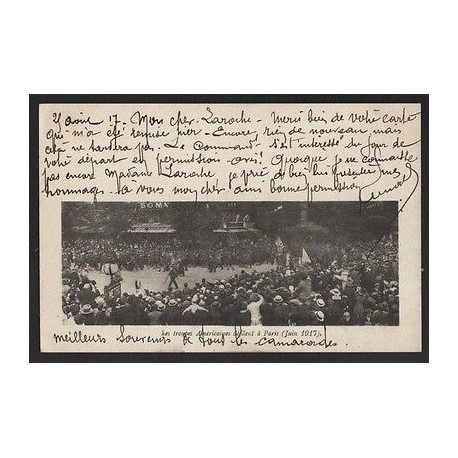 21 août 17. Mon cher Laroche - Merci bien de votre carte
qui m'a été remise hier - Encore rien de nouveau mais
cela ne tardera pas. Le Command. s'est interessé du jour de
votre départ en permission - Quoique je ne connaisse
pas encore Madame Laroche je prie de lui présenter mes
hommages - à vous mon cher ami bonne permission
SOMM
Les troupes Américaines défilent à Paris (Juin 1917).
meilleurs Souvenirs à tous les camarades.